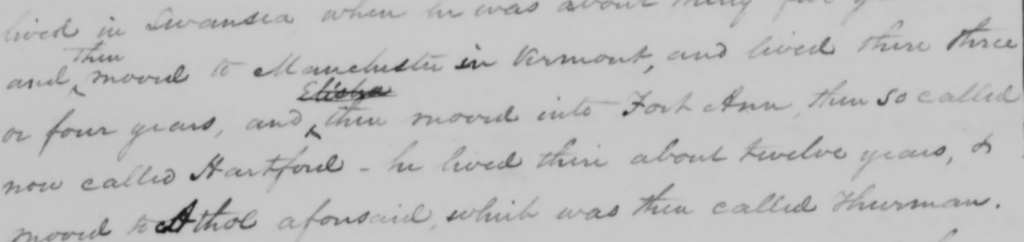 lived in Swansea when he was about thirty five
then
and moved to Manchester in Vermont, and lived there three
Elisha
or four years, and then moved into Fort Ann, then so called
now called Hartford - he lived there about twelve years, &
moved to Athol aforesaid, which was then called Thurman.